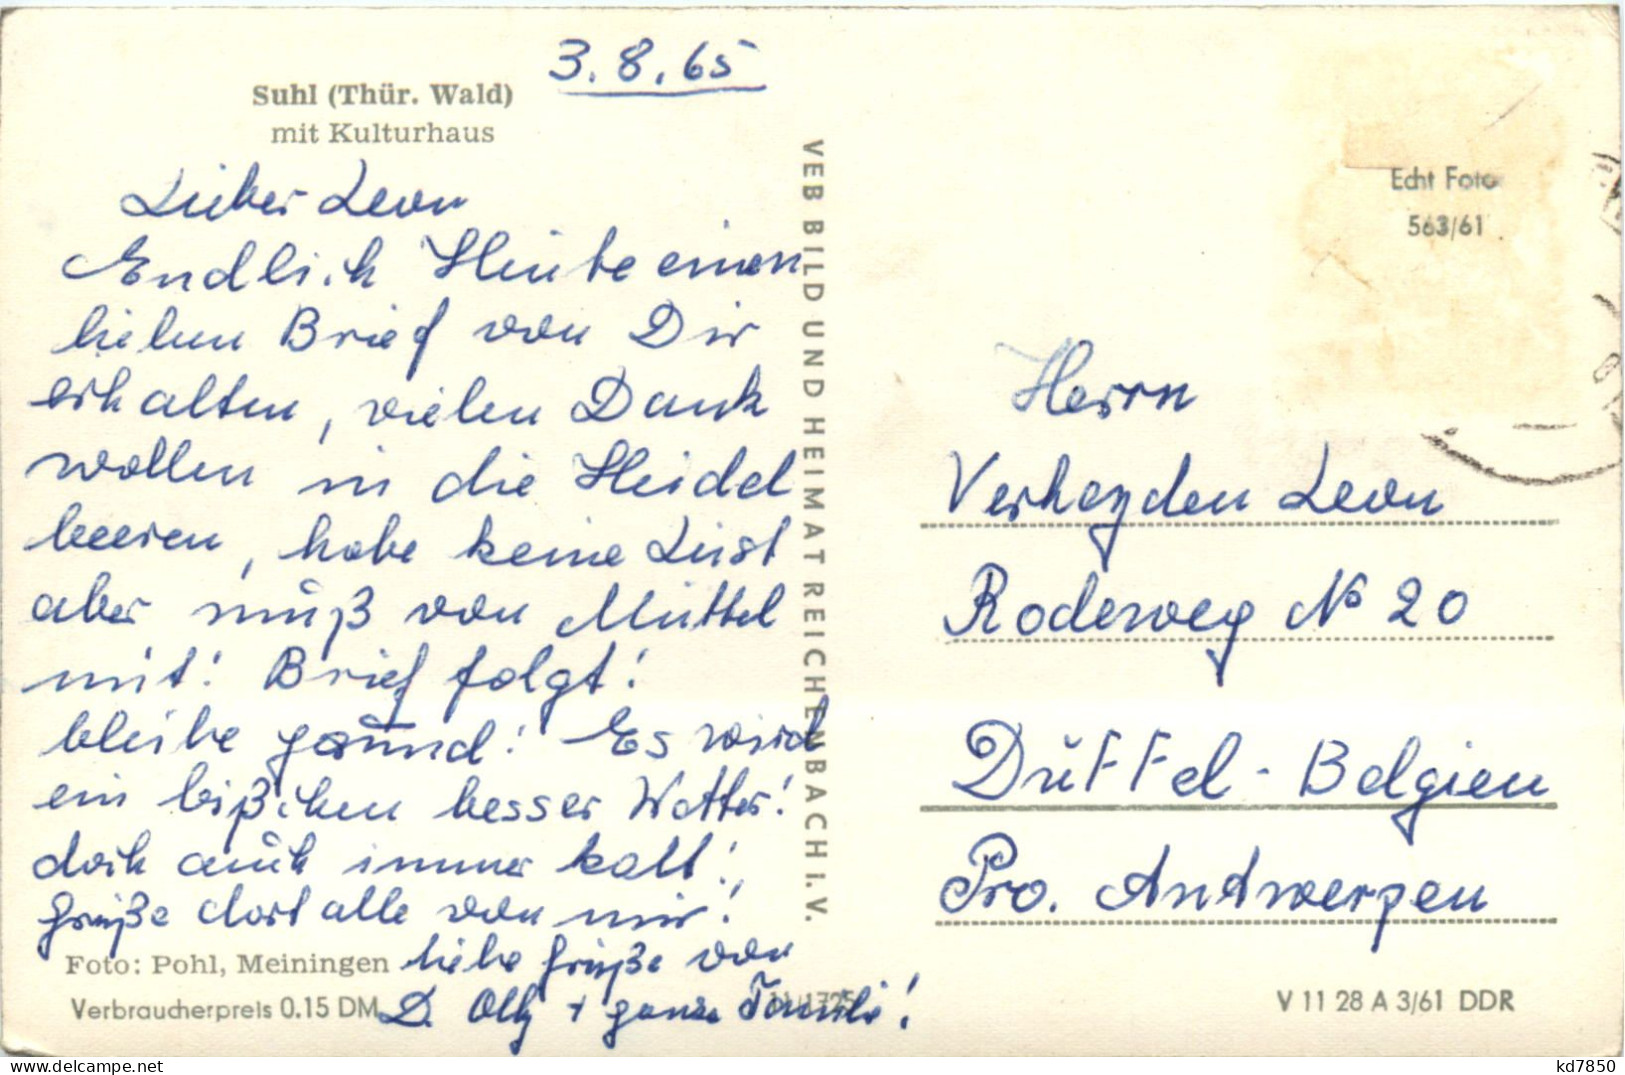 3.8.65
Suhl (Thür. Wald)
mit Kulturhaus
Lieber Leon
Endlich Heute einen
lieben Brief von Dir
erhalten, vielen Dank
wollen in die Heidel
beeren, habe keine Lust
aber muß von Muttel
mit! Brief folgt!
bleibe gesund! Es wird
ein bißchen besser Wetter!
doch auch immer kalt!,
Grüße dort alle von mir!
liebe Grüße von
D. Olly + ganze Familie!
Foto: Pohl, Meiningen
Verbraucherpreis 0.15 DM
VEB BILD UND HEIMAT REICHENBACH I. V.
Echt Foto
563/61
Herrn
Verheyden Leon
Rodeweg № 20
Düffel - Belgien
Pro. Antwerpen
V 11 28 A 3/61 DDR
kd7850
delcampe.net